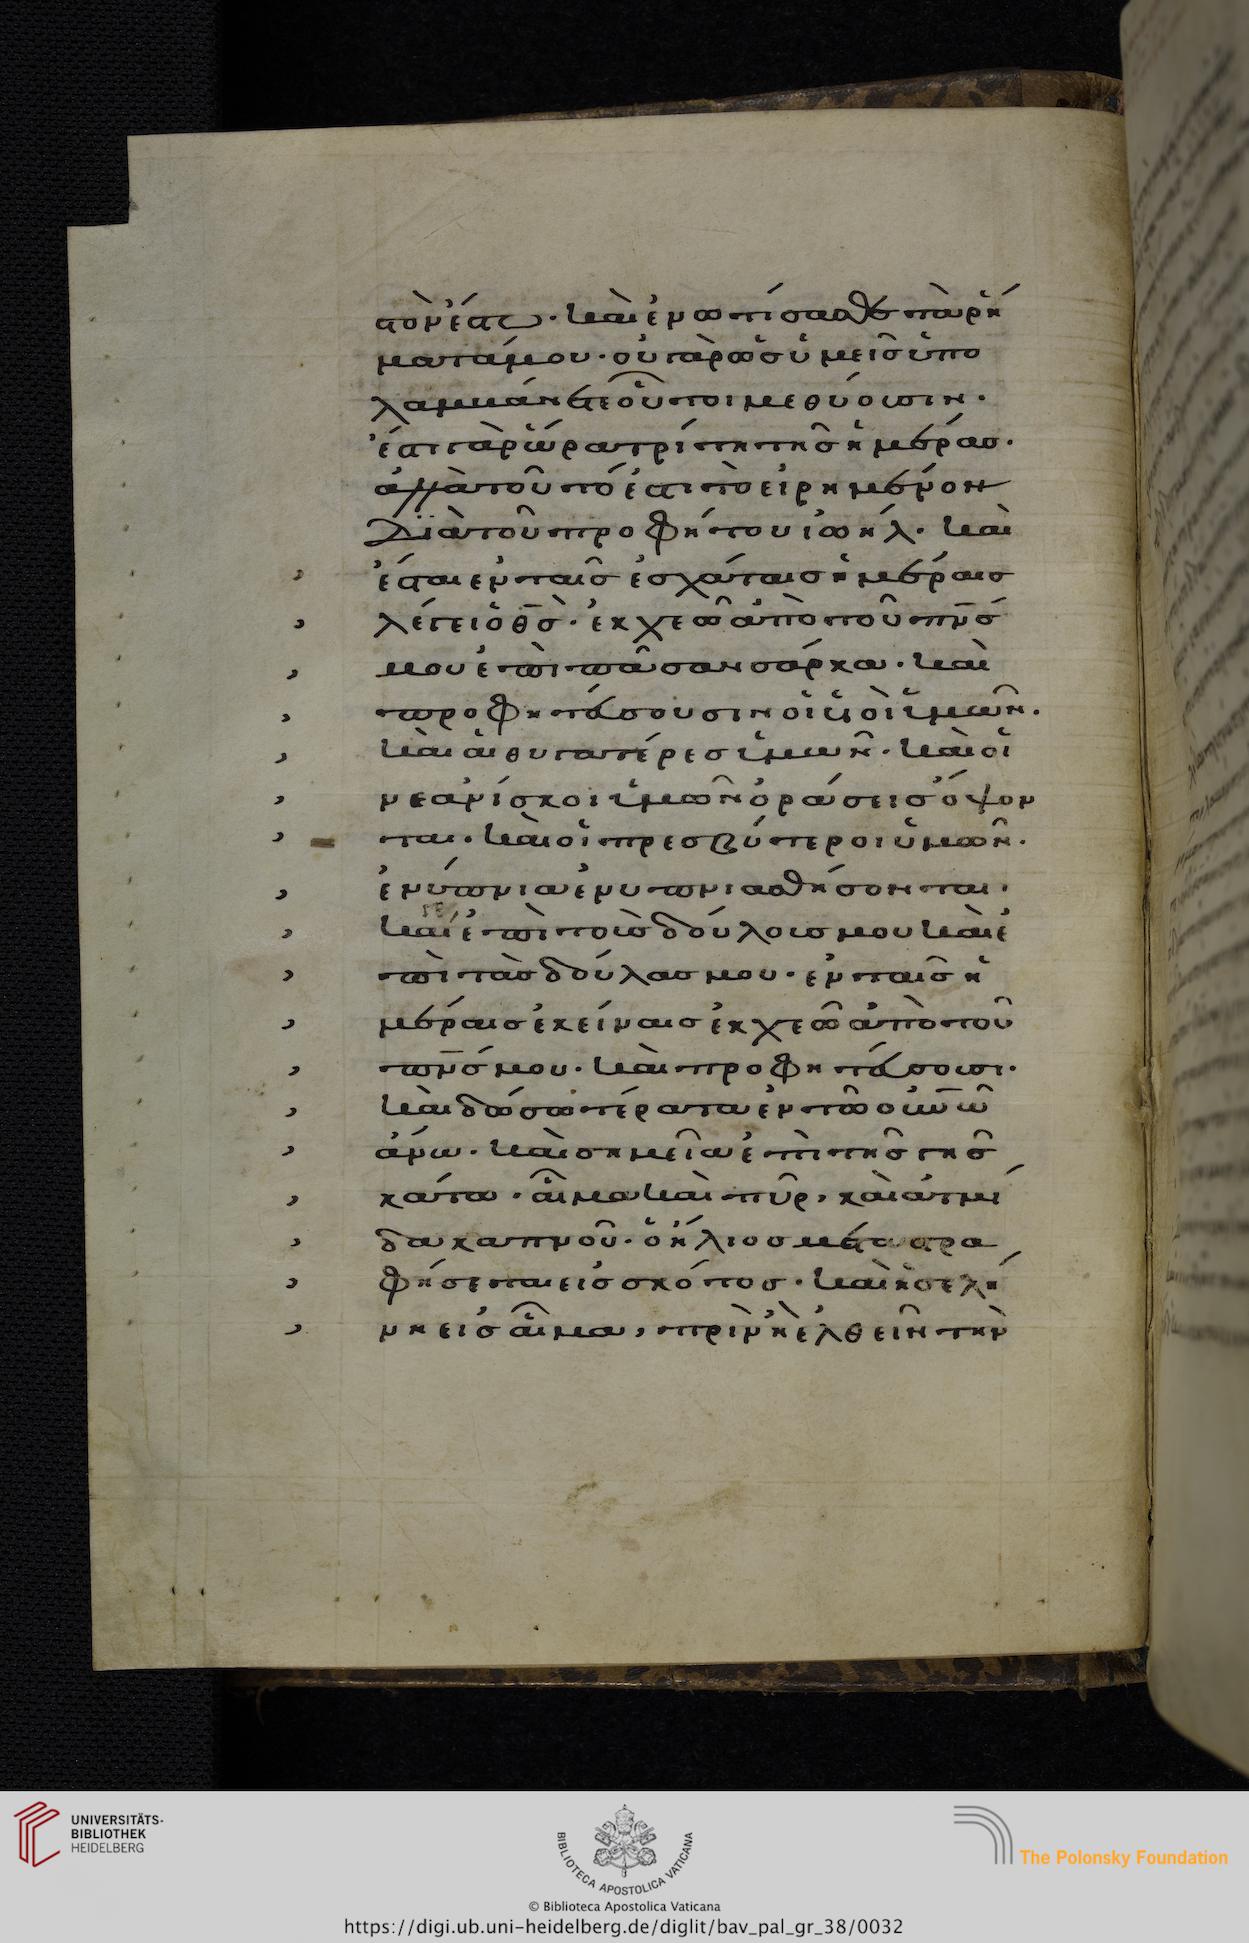 στὸν ἔστω· καὶ ἐνωτίσασθε τὰ ῥή
ματά μου· οὐ γὰρ ὡς ὑμεῖς ὑπο
λαμβάνετε οὗτοι μεθύουσιν·
ἔστι γὰρ ὥρα τρίτη τῆς ἡμέρας·
ἀλλὰ τοῦτό ἐστι τὸ εἰρημένον
διὰ τοῦ προφήτου ἰωήλ· καὶ
ἔσται ἐν ταῖς ἐσχάταις ἡμέραις
λέγει ὁ θς̄· ἐκχεῶ ἀπὸ τοῦ πν̄ς
μου ἐπὶ πᾶσαν σάρκα· καὶ
προφητεύσουσιν οἱ υἱοὶ ὑμῶν·
καὶ αἱ θυγατέρες ὑμῶν· καὶ οἱ
νεανίσκοι ὑμῶν ὁράσεις ὄψον
ται· καὶ οἱ πρεσβύτεροι ὑμῶν·
ἐνύπνια ἐνυπνιασθήσονται·
καί γε ἐπὶ τοὺς δούλους μου καὶ ἐ
πὶ τὰς δούλας μου· ἐν ταῖς ἡ
μέραις ἐκείναις ἐκχεῶ ἀπὸ τοῦ
πν̄ς μου· καὶ προφητεύσουσι·
καὶ δώσω τέρατα ἐν τῷ οὐν̄ῶ
ἄνω· καὶ σημεῖα ἐπὶ τῆς γῆς
κάτω· αἷμα καὶ πῦρ, καὶ ἀτμί
δα καπνοῦ· ὁ ἥλιος μεταστρα
φήσεται εἰς σκότος· καὶ ἡ σελή
νη εἰς αἷμα, πρὶν ἢ ἐλθεῖν τὴν
UNIVERSITÄTS-
BIBLIOTHEK
HEIDELBERG
BIBLIOTECA APOSTOLICA VATICANA
The Polonsky Foundation
© Biblioteca Apostolica Vaticana
https://digi.ub.uni-heidelberg.de/diglit/bav_pal_gr_38/0032